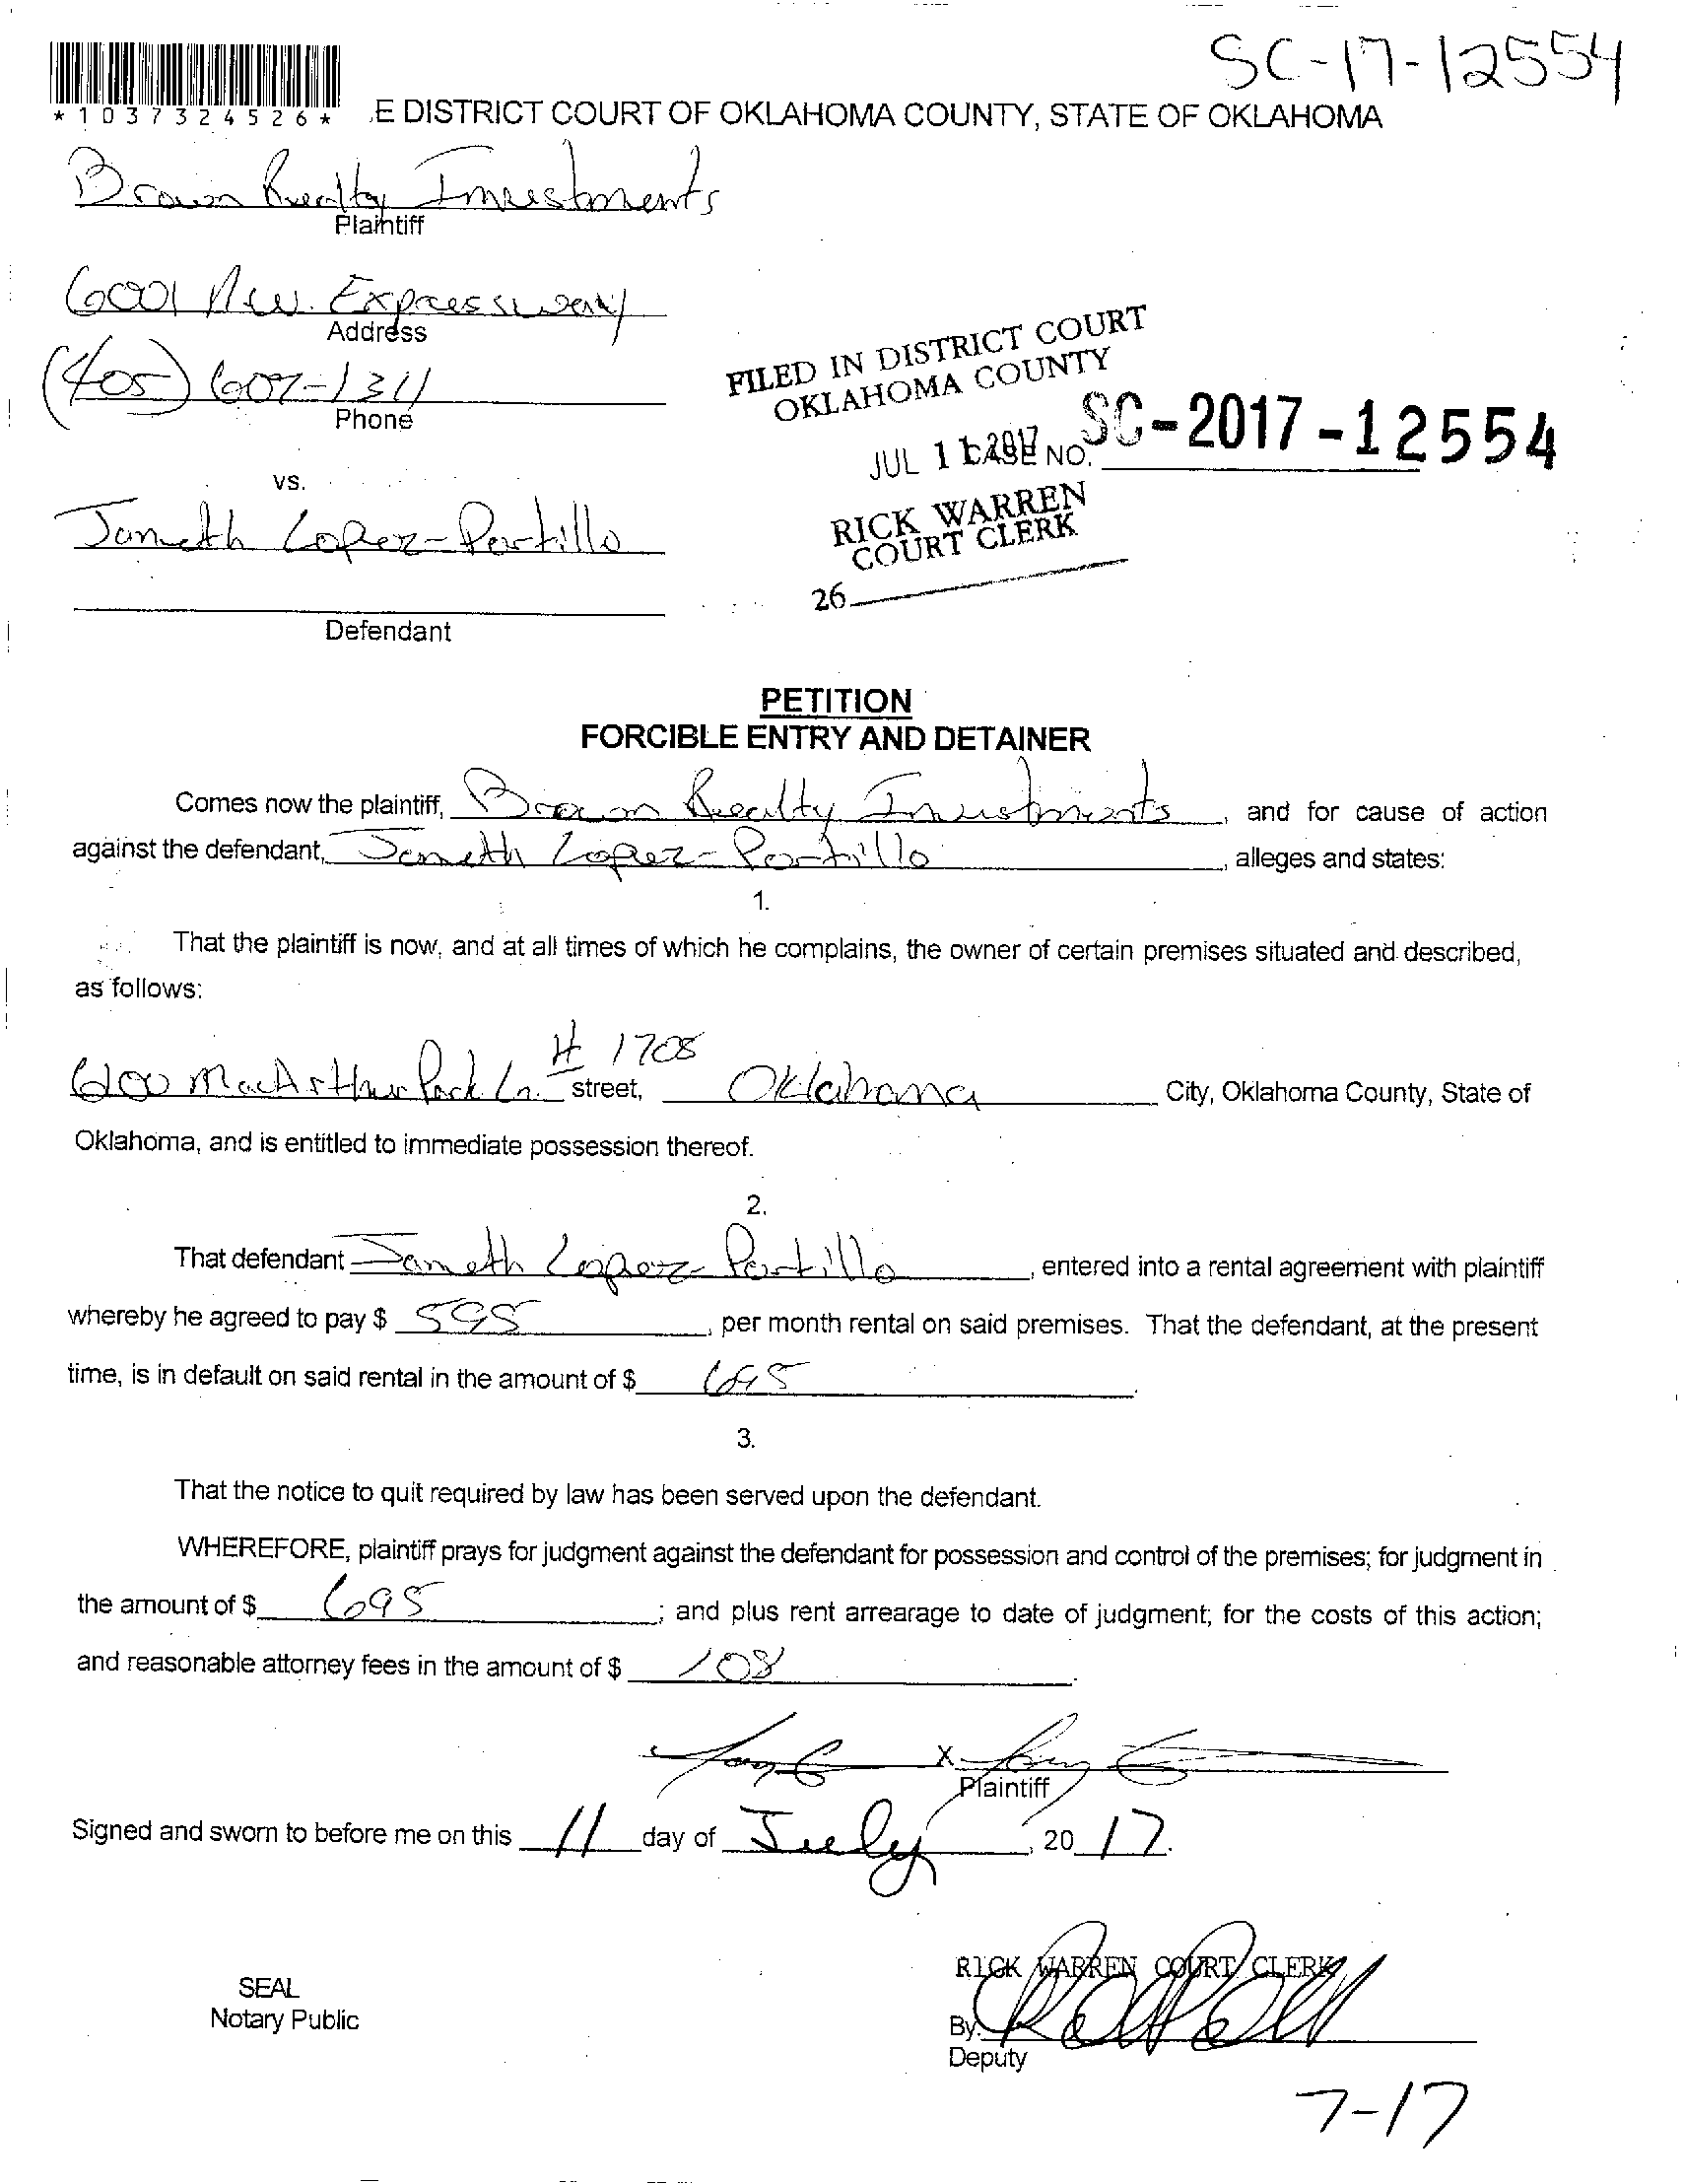 SC-17-12554
*1037324526* E DISTRICT COURT OF OKLAHOMA COUNTY, STATE OF OKLAHOMA
Brown Realty Investments
Plaintiff
6001 N.W. Expressway
Address
(405) 607-1311
Phone
FILED IN DISTRICT COURT
OKLAHOMA COUNTY
JUL 11 2017 CASE NO. SC-2017-12554
vs.
RICK WARREN
COURT CLERK
Janeth Lopez-Portillo
26
Defendant
PETITION
FORCIBLE ENTRY AND DETAINER
Comes now the plaintiff, Brown Realty Investments, and for cause of action
against the defendant, Janeth Lopez-Portillo, alleges and states:
1.
That the plaintiff is now, and at all times of which he complains, the owner of certain premises situated and described,
as follows:
# 1708
MacArthur Park Ln. street, Oklahoma City, Oklahoma County, State of
Oklahoma, and is entitled to immediate possession thereof.
2.
That defendant Janeth Lopez-Portillo, entered into a rental agreement with plaintiff
whereby he agreed to pay $ 595, per month rental on said premises. That the defendant, at the present
time, is in default on said rental in the amount of $ 695.
3.
That the notice to quit required by law has been served upon the defendant.
WHEREFORE, plaintiff prays for judgment against the defendant for possession and control of the premises; for judgment in
the amount of $ 695; and plus rent arrearage to date of judgment; for the costs of this action;
and reasonable attorney fees in the amount of $ 108.
X
Plaintiff
Signed and sworn to before me on this 11 day of July, 20 17.
RICK WARREN COURT CLERK
SEAL
Notary Public
By:
Deputy
7-17